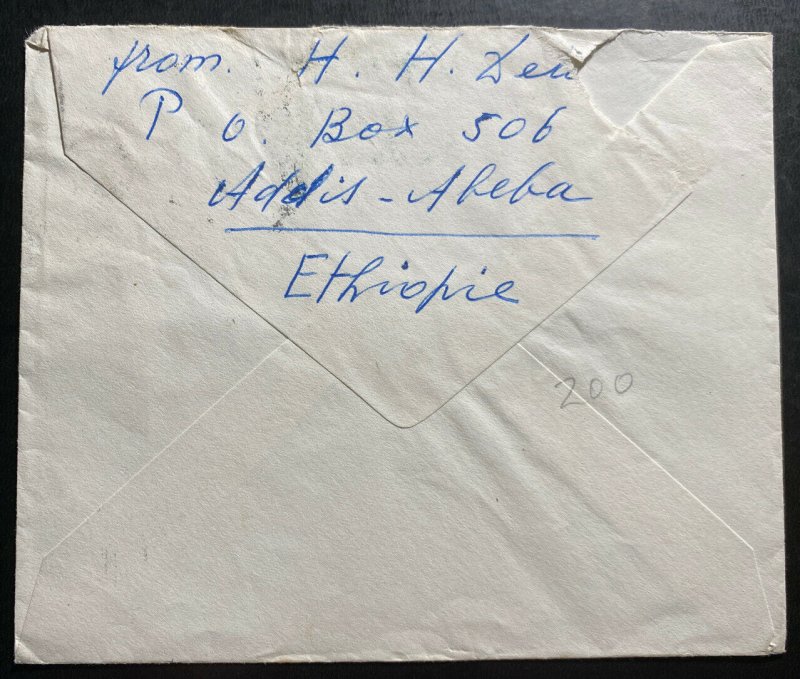 from. H. H.
P O. Box 506
Addis-Abeba
Ethiopie
200